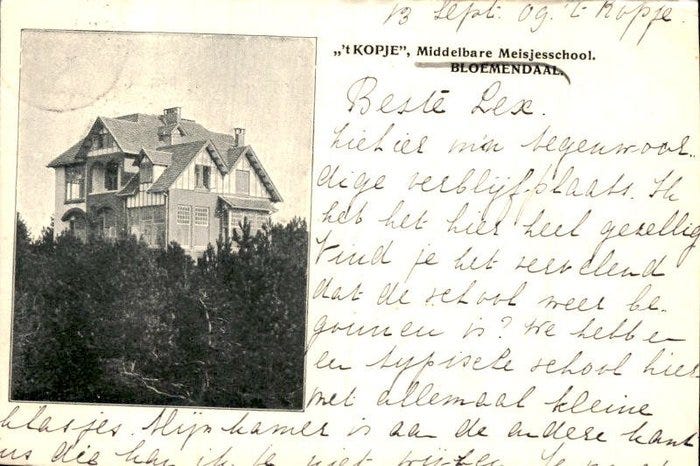 13 Sept. 09. 't Kopje.
„'t KOPJE”, Middelbare Meisjesschool.
BLOEMENDAAL.
Beste Lex.
hier m'n tegenwoor-
dige verblijfplaats. Ik
heb het hier heel gezellig
Vind je het vervelend
dat de school weer be-
gonnen is? We hebben
en typische school hier
met allemaal kleine
klasjes. Mijn kamer is aan de andere kant
dus die kan ik je niet